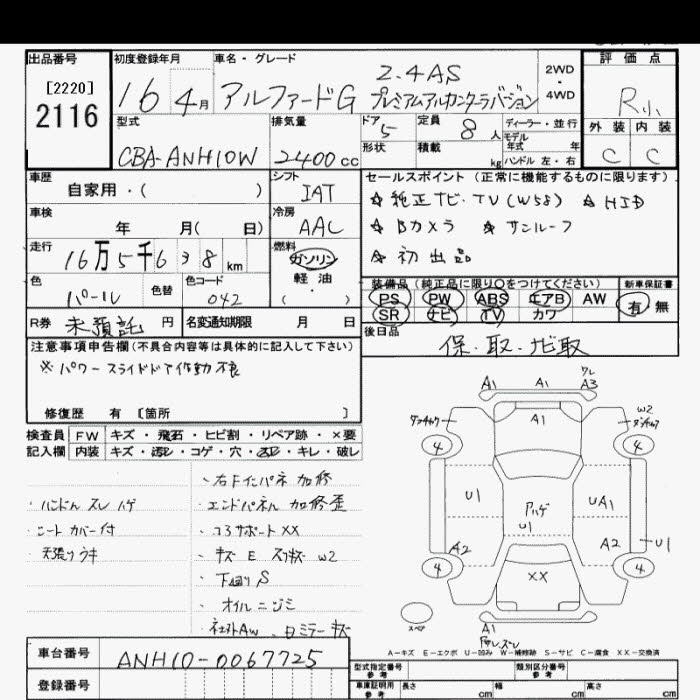 出品番号 初度登録年月 車名・グレード 評価点
[2220]
2116
16 4月 アルファードG 2.4AS プレミアムアルカンターラバージョン
2WD・4WD
R小
型式 排気量 ドア 定員 ディーラー・並行 外装 内装
CBA-ANH10W 2400cc 5 8人 モデル年式 年
形状 積載 kg ハンドル 左・右 C C
車歴 シフト セールスポイント (正常に機能するものに限ります)
自家用・( ) IAT
☆純正ナビ・TV(W58) ☆HID
車検 冷房
年 月( 日) AAC
☆Bカメラ ☆サンルーフ
走行 燃料
16万5千6 8km ガソリン
☆初出品
軽油
( )
色 色替 色コード 装備品 (純正品に限り○をつけてください) 新車保証書
パール 042
PS PW ABS エアB AW 有 無
SR ナビ TV カワ
R券 未預託 円 名変通知期限 月 日
後日品
保・取・ナビ取
注意事項申告欄(不具合内容等は具体的に記入して下さい)
※パワースライドドア作動不良
修復歴 有 [箇所 ]
検査員 FW キズ・飛石・ヒビ割・リペア跡・×要
記入欄 内装 キズ・汚レ・コゲ・穴・スレ・キレ・破レ
・右Fインパネ加修
・ハンドルスレハゲ ・エンドパネル加修歪
・シートカバー付 ・コアサポートXX
・天張りウキ ・キズE スリキズW2
・下回りS
・オイルニジミ
A1 A1 A3
A1
W2
4 4
U1 UA1
U1
A2 A2 U1
4 4
XX
スペア
A1
A=キズ E=エクボ U=凹み W=補修跡 S=サビ C=腐食 XX=交換済
車台番号 ANH10-0067725
登録番号
型式指定番号 参考 類別区分番号 参考
車庫証明用 参考 長さ cm 幅 cm 高さ cm